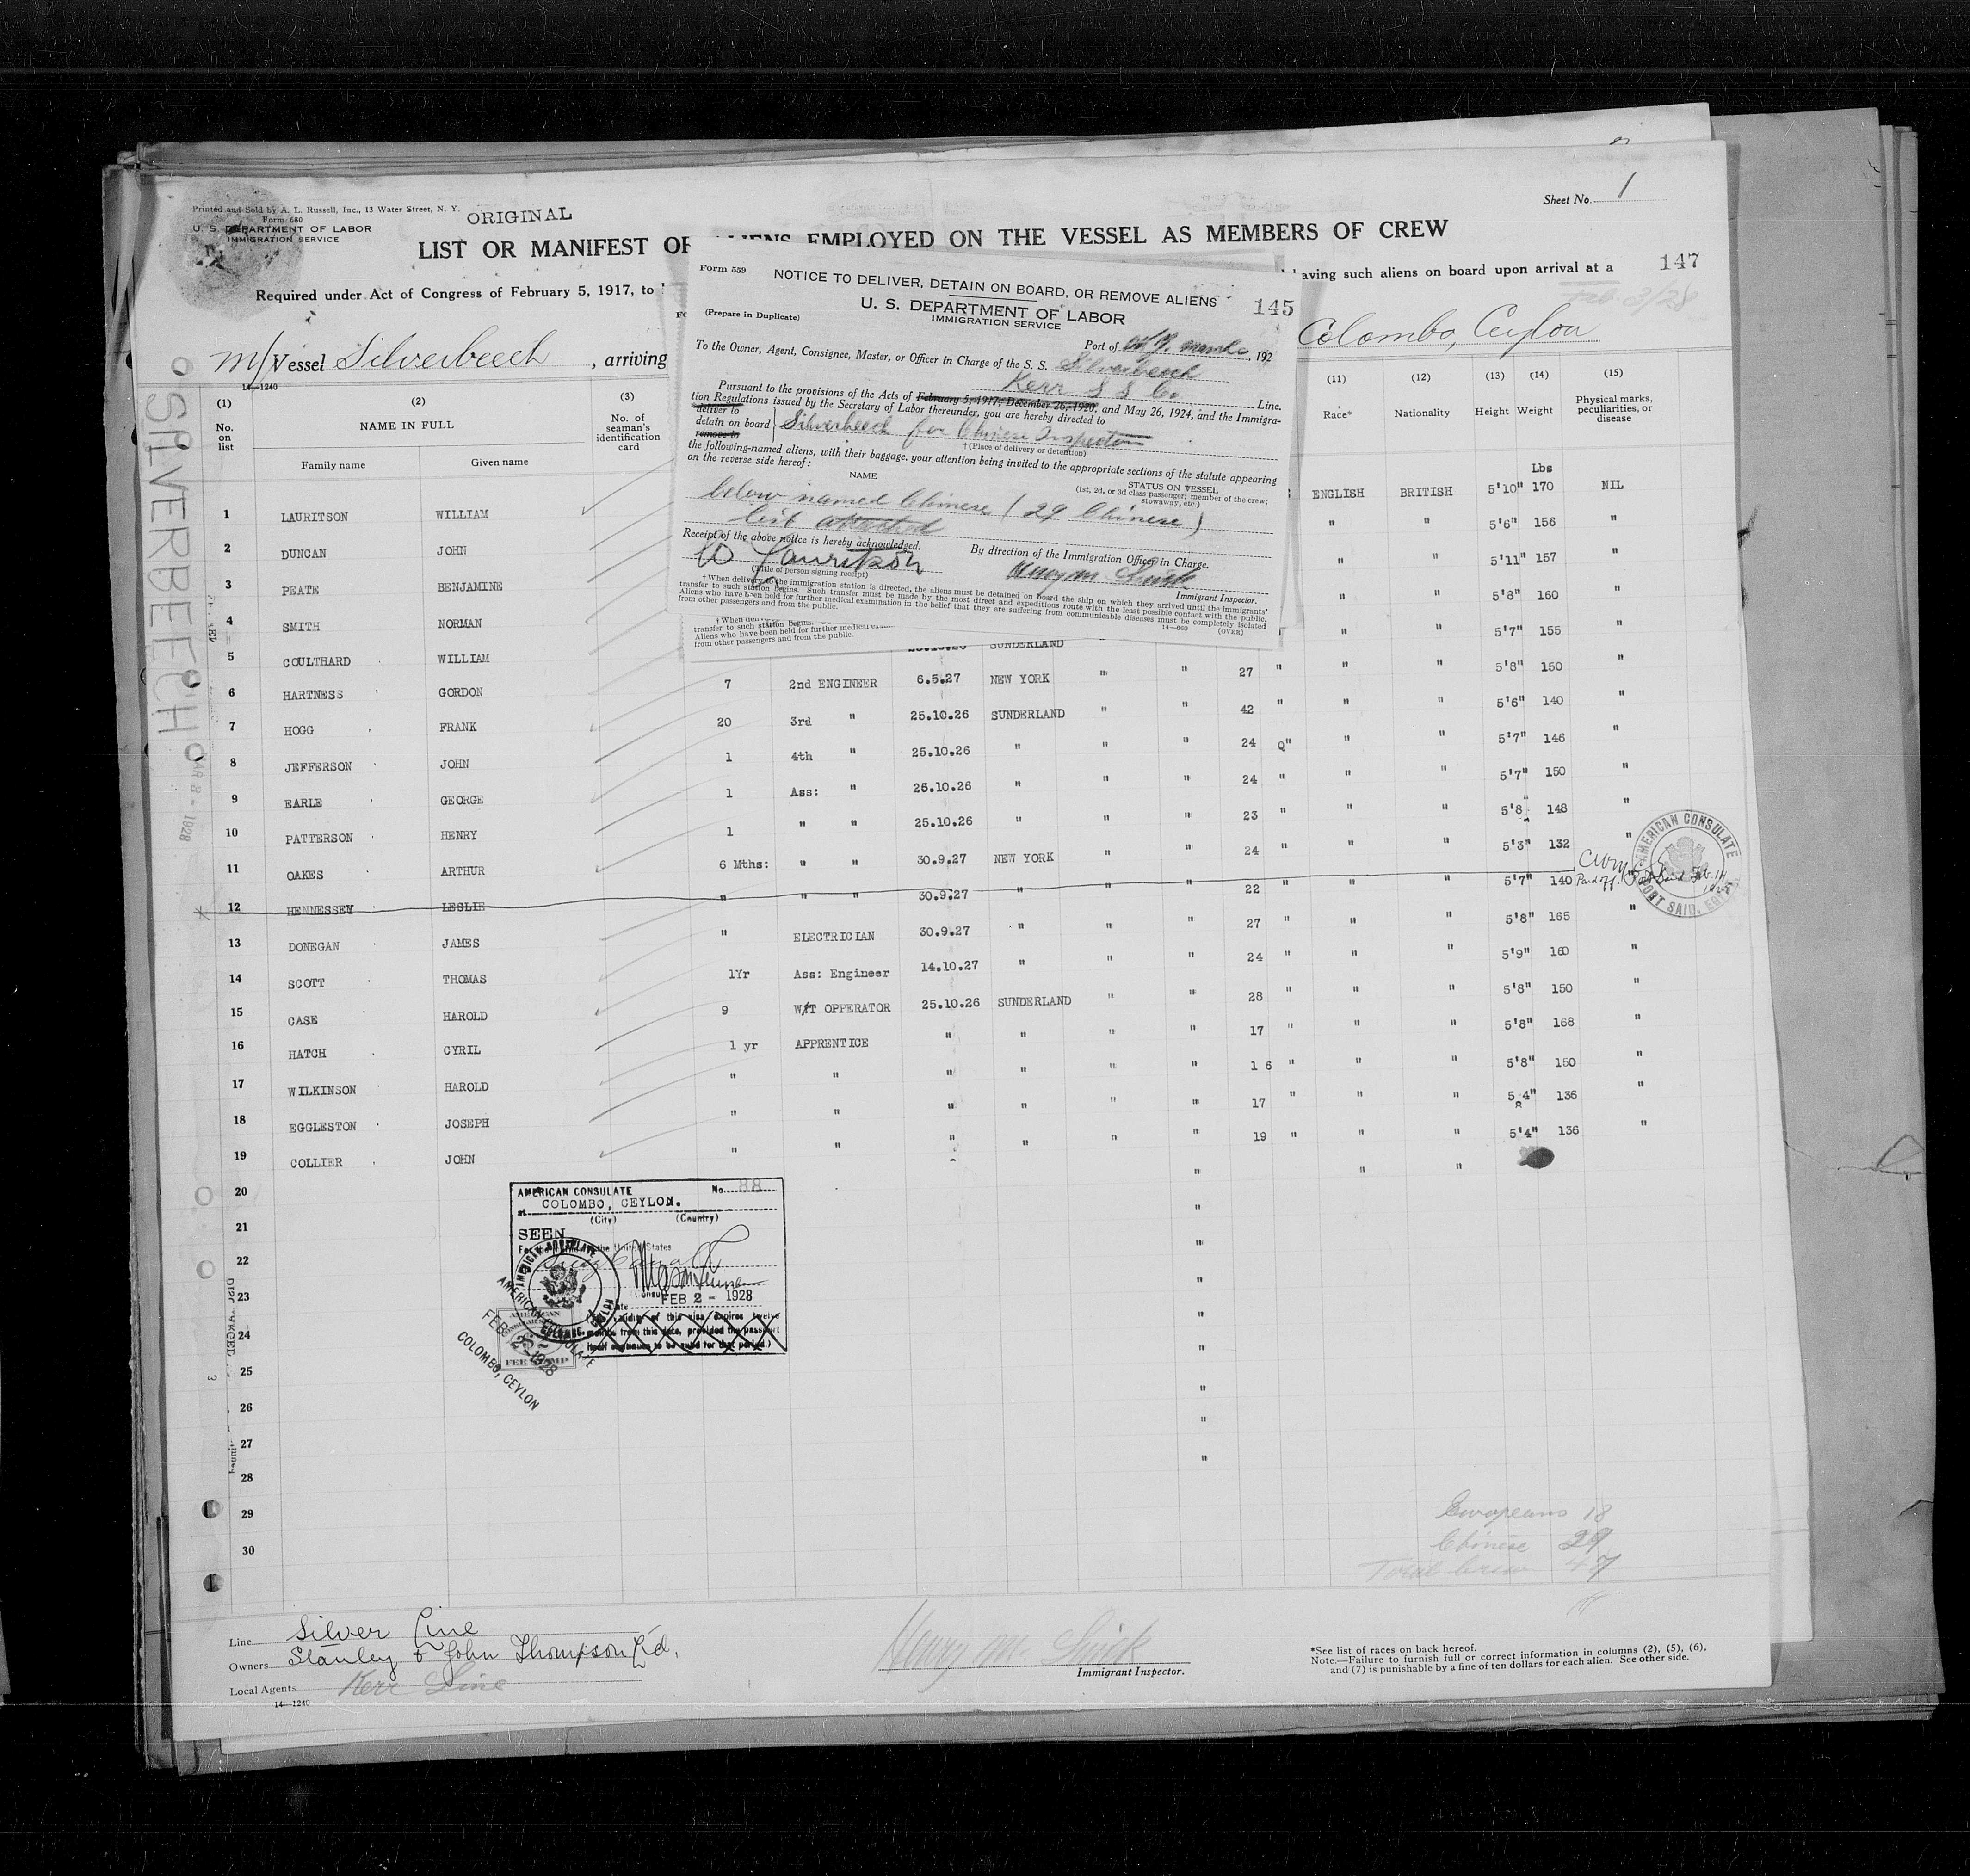 Sheet No. 1
Printed and Sold by A. L. Russell, Inc., 13 Water Street, N. Y.
Form 680
U. S. DEPARTMENT OF LABOR
IMMIGRATION SERVICE
ORIGINAL
LIST OR MANIFEST OF ALIENS EMPLOYED ON THE VESSEL AS MEMBERS OF CREW
147
Required under Act of Congress of February 5, 1917, to
having such aliens on board upon arrival at a
Feb. 3/28
m/Vessel Silverbeech, arriving
Colombo, Ceylon
14—1240
Form 559
NOTICE TO DELIVER, DETAIN ON BOARD, OR REMOVE ALIENS
145
U. S. DEPARTMENT OF LABOR
IMMIGRATION SERVICE
(Prepare in Duplicate)
Port of , 192
To the Owner, Agent, Consignee, Master, or Officer in Charge of the S. S. Silverbeech
Kerr S S Co Line.
Pursuant to the provisions of the Acts of February 5, 1917, December 26, 1920, and May 26, 1924, and the Immigra-
tion Regulations issued by the Secretary of Labor thereunder, you are hereby directed to
deliver to
detain on board Silverbeech for Chinese Inspection
remove to
† (Place of delivery or detention)
the following-named aliens, with their baggage, your attention being invited to the appropriate sections of the statute appearing
on the reverse side hereof:
NAME
STATUS ON VESSEL
(1st, 2d, or 3d class passenger; member of the crew;
stowaway, etc.)
below named Chinese (29 Chinese)
list attached
Receipt of the above notice is hereby acknowledged.
W Lauritson
(Title of person signing receipt)
By direction of the Immigration Officer in Charge.
Henry M.
Immigrant Inspector.
† When delivery to the immigration station is directed, the aliens must be detained on board the ship on which they arrived until the immigrants'
transfer to such station begins. Such transfer must be made by the most direct and expeditious route with the least possible contact with the public.
Aliens who have been held for further medical examination in the belief that they are suffering from communicable diseases must be completely isolated
from other passengers and from the public.
14—660 (OVER)
† When
transfer to such station begins.
Aliens who have been held for further medical
from other passengers and from the public.
(1) (2) (3) (11) (12) (13) (14) (15)
No. on list
NAME IN FULL
Family name Given name
No. of seaman's identification card
Race* Nationality Height Weight Physical marks, peculiarities, or disease
Lbs
1 LAURITSON WILLIAM ENGLISH BRITISH 5'10" 170 NIL
2 DUNCAN JOHN " " 5'6" 156 "
3 PEATE BENJAMINE " " 5'11" 157 "
4 SMITH NORMAN " " 5'8" 160 "
5 COULTHARD WILLIAM SUNDERLAND " " 5'7" 155 "
6 HARTNESS GORDON 7 2nd ENGINEER 6.5.27 NEW YORK " " 27 " " " 5'8" 150 "
7 HOGG FRANK 20 3rd " 25.10.26 SUNDERLAND " " 42 " " " 5'6" 140 "
8 JEFFERSON JOHN 1 4th " 25.10.26 " " " 24 " " " 5'7" 146 "
9 EARLE GEORGE 1 Ass: " 25.10.26 " " " 24 " " " 5'7" 150 "
10 PATTERSON HENRY 1 " " 25.10.26 " " " 23 " " " 5'8 148 "
11 OAKES ARTHUR 6 Mths: " " 30.9.27 NEW YORK " " 24 " " " 5'3" 132 "
12 HENNESSEY LESLIE " " " 30.9.27 " " " 22 " " " 5'7" 140 Paid off. Port Said Feb. 14
13 DONEGAN JAMES " ELECTRICIAN 30.9.27 " " " 27 " " " 5'8" 165 "
14 SCOTT THOMAS 1Yr Ass: Engineer 14.10.27 " " " 24 " " " 5'9" 160 "
15 CASE HAROLD 9 W/T OPPERATOR 25.10.26 SUNDERLAND " " 28 " " " 5'8" 150 "
16 HATCH CYRIL 1 yr APPRENTICE " " " " 17 " " " 5'8" 168 "
17 WILKINSON HAROLD " " " " " " 1 6 " " " 5'8" 150 "
18 EGGLESTON JOSEPH " " " " " " 17 " " " 5 4" 136 "
19 COLLIER JOHN " " " " " " 19 " " " 5'4" 136 "
20 " " "
21 "
22 "
23 "
24 "
25 "
26 "
27 "
28 "
29
30
AMERICAN CONSULATE
PORT SAID, EGYPT
SILVERBEECH
MAR 8 - 1928
AMERICAN CONSULATE No. 88
at COLOMBO, CEYLON.
(City) (Country)
SEEN
For the the United States
Consul
FEB 2 - 1928
validity of this visa expires twelve
months from this date, provided the passport
itself continues to be valid for that period.)
AMERICAN CONSULATE
COLOMBO, CEYLON
AMERICAN
FEE STAMP
AMERICAN CONSULATE
FEB 2 - 1928
COLOMBO, CEYLON
Europeans 18
Chinese 29
Total Crew 47
Line Silver Line
Owners Stanley & John Thompson Ltd.
Local Agents Kerr Line
14—1240
Henry M.
Immigrant Inspector.
*See list of races on back hereof.
Note.—Failure to furnish full or correct information in columns (2), (5), (6),
and (7) is punishable by a fine of ten dollars for each alien. See other side.